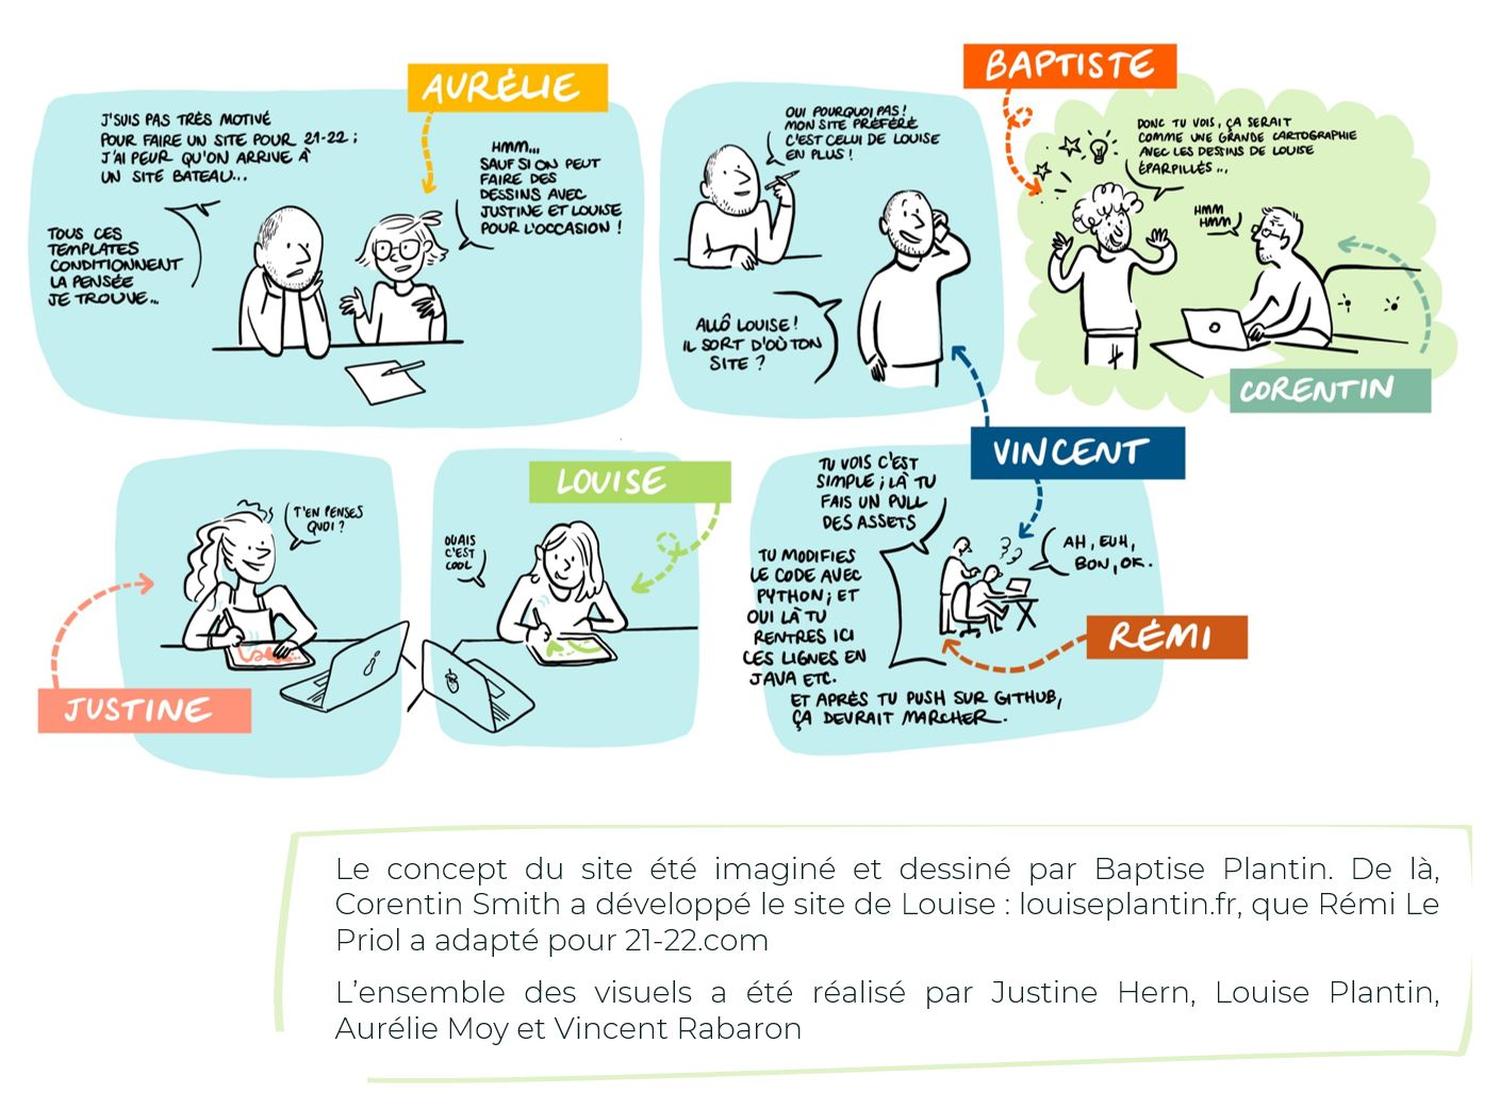 AURÉLIE
J'SUIS PAS TRÈS MOTIVÉ
POUR FAIRE UN SITE POUR 21-22 ;
J'AI PEUR QU'ON ARRIVE À
UN SITE BATEAU...
TOUS CES
TEMPLATES
CONDITIONNENT
LA PENSÉE
JE TROUVE...
HMM...
SAUF SI ON PEUT
FAIRE DES
DESSINS AVEC
JUSTINE ET LOUISE
POUR L'OCCASION !
OUI POURQUOI PAS !
MON SITE PRÉFÉRÉ
C'EST CELUI DE LOUISE
EN PLUS !
ALLÔ LOUISE !
IL SORT D'OÙ TON
SITE ?
BAPTISTE
DONC TU VOIS, ÇA SERAIT
COMME UNE GRANDE CARTOGRAPHIE
AVEC LES DESSINS DE LOUISE
ÉPARPILLÉS...
HMM
HMM
CORENTIN
VINCENT
JUSTINE
T'EN PENSES
QUOI ?
LOUISE
OUAIS
C'EST
COOL
TU VOIS C'EST
SIMPLE ; LÀ TU
FAIS UN PULL
DES ASSETS
TU MODIFIES
LE CODE AVEC
PYTHON ; ET
OUI LÀ TU
RENTRES ICI
CES LIGNES EN
JAVA ETC.
ET APRÈS TU PUSH SUR GITHUB,
ÇA DEVRAIT MARCHER.
AH, EUH,
BON, OK.
RÉMI
Le concept du site été imaginé et dessiné par Baptise Plantin. De là,
Corentin Smith a développé le site de Louise : louiseplantin.fr, que Rémi Le
Priol a adapté pour 21-22.com
L'ensemble des visuels a été réalisé par Justine Hern, Louise Plantin,
Aurélie Moy et Vincent Rabaron